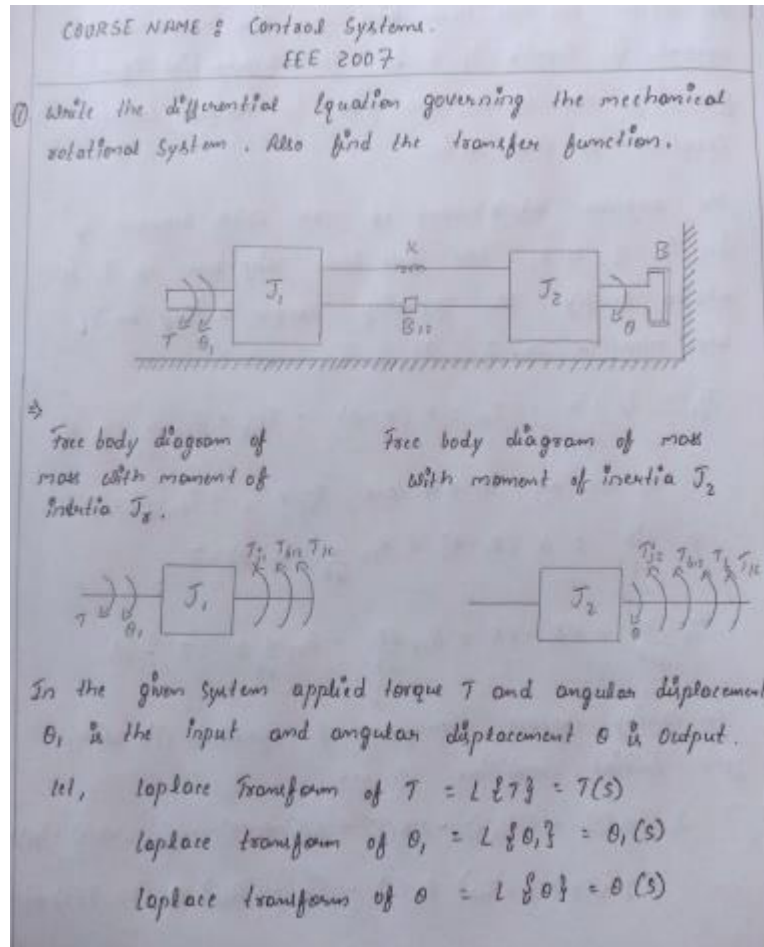 COURSE NAME : Control Systems.
EEE 2007
① Write the differential Equation governing the mechanical
rotational System. Also find the transfer function.
K
J₁
J₂
B
B₁₂
T θ₁
θ
⇒
Free body diagram of
mass with moment of
inertia J₁.
Free body diagram of mass
with moment of inertia J₂
Tj₁ Tb₁₂ Tk
J₁
T θ₁
Tj₂ Tb₁₂ Tb Tk
J₂
θ
In the given system applied torque T and angular displacement
θ₁ is the input and angular displacement θ is output.
let, laplace Transform of T = L {T} = T(s)
laplace transform of θ₁ = L {θ₁} = θ₁(s)
laplace transform of θ = L {θ} = θ(s)